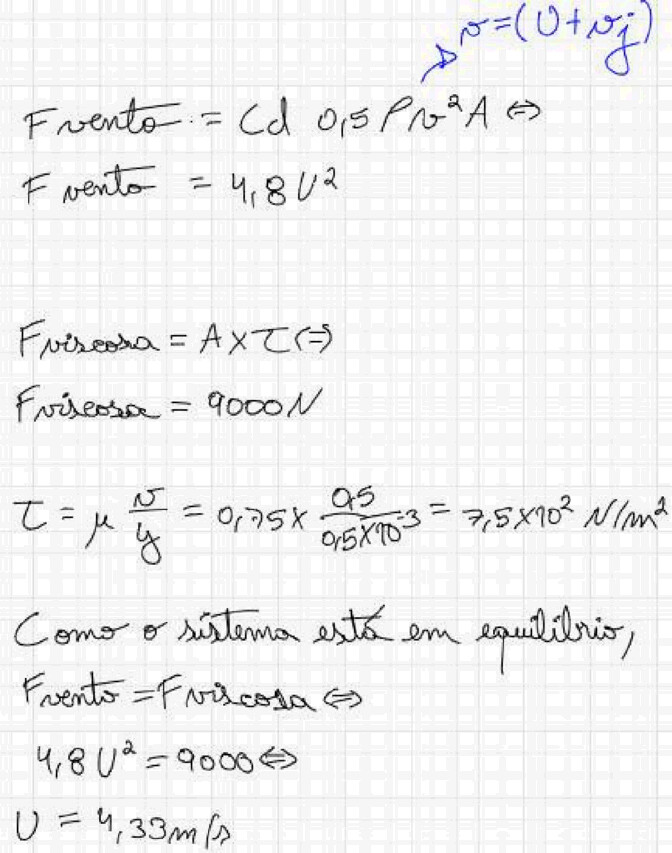 v=(U+vj)
Fvento = Cd 0,5 ρv²A ⇔
Fvento = 4,8U²
Fviscosa = A×τ⇔
Fviscosa = 9000N
τ = μ v/y = 0,75× 0,5/0,5×10⁻³ = 7,5×10² N/m²
Como o sistema está em equilíbrio,
Fvento = Fviscosa ⇔
4,8U² = 9000⇔
U = 4,33m/s